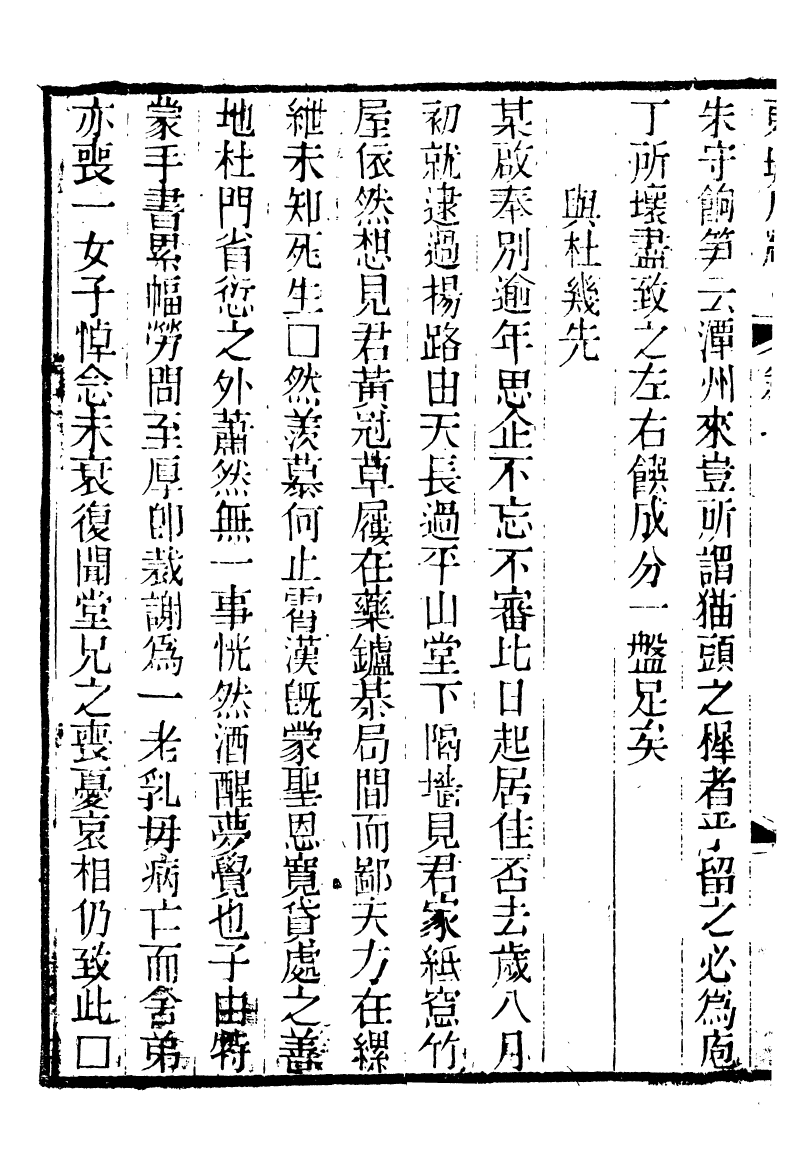 朱守餉笋云潭州來豈所謂猫頭之穉者乎留之必為庖
丁所壞盡致之左右饌成分一盤足矣
與杜幾先
某啟奉別逾年思企不忘不審比日起居佳否去歲八月
初就逮過揚路由天長過平山堂下隔墻見君家紙窓竹
屋依然想見君黃冠草屨在藥鑪棊局間而鄙夫方在縲
紲未知死生口然羨慕何止霄漢旣蒙聖恩寬貸處之善
地杜門省愆之外蕭然無一事恍然酒醒夢覺也子由特
蒙手書累幅勞問至厚卽裁謝為一老乳母病亡而舍弟
亦喪一女子悼念未衰復聞堂兄之喪憂哀相仍致此口